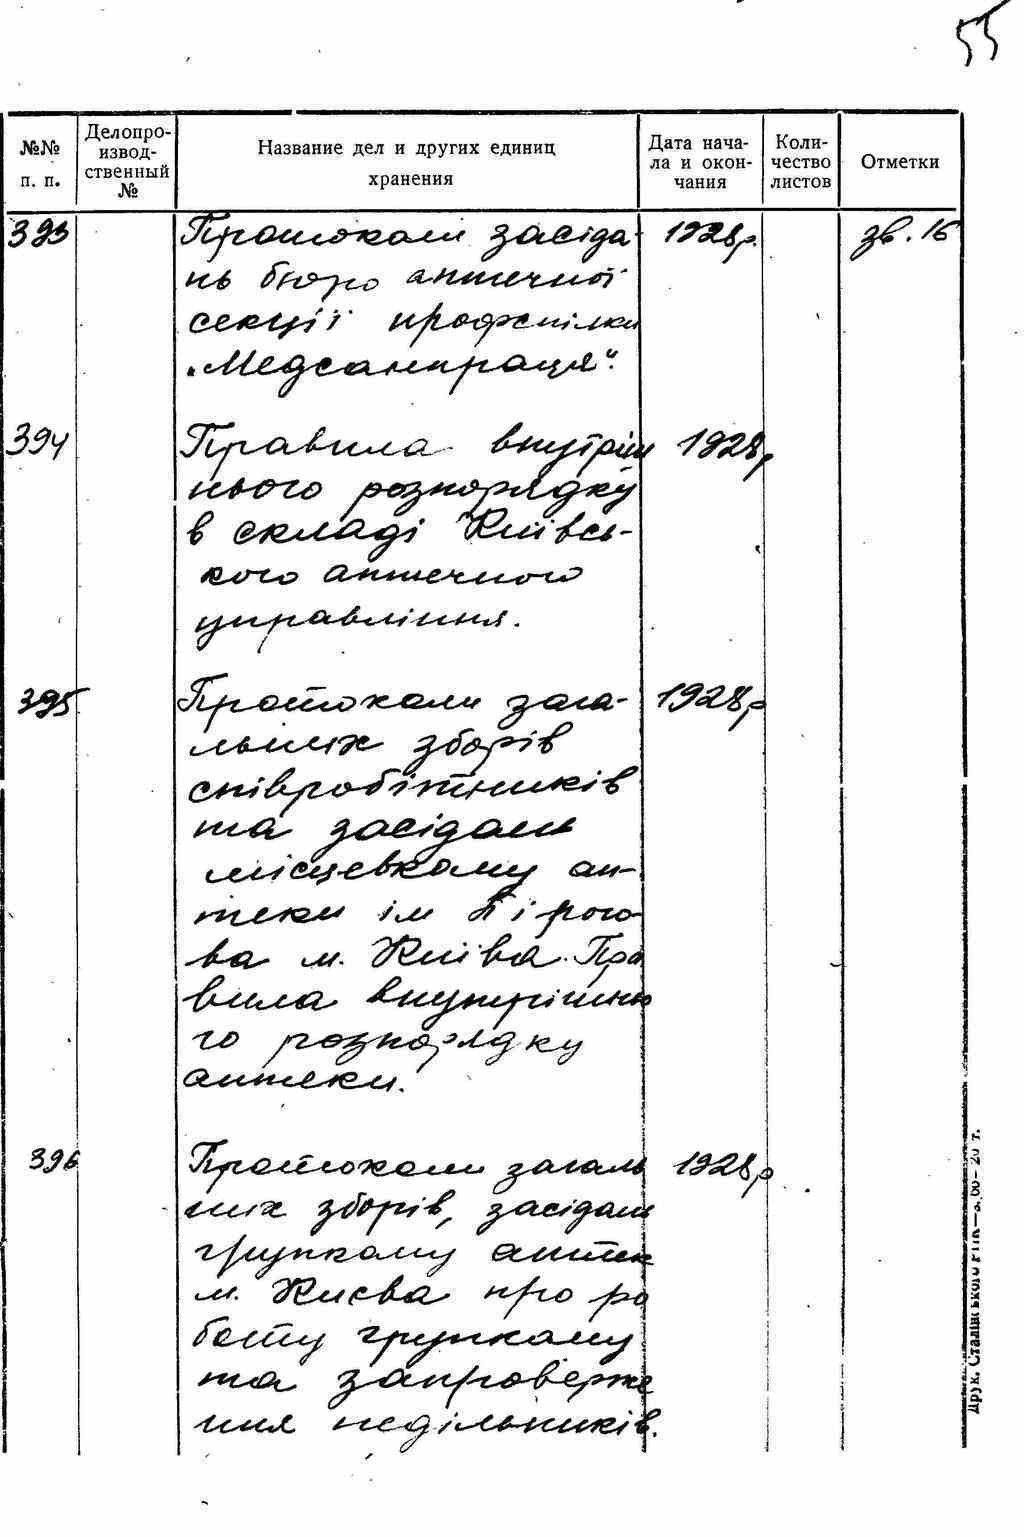 55
№№ п. п.
Делопро-
извод-
ственный
№
Название дел и других единиц
хранения
Дата нача-
ла и окон-
чания
Коли-
чество
листов
Отметки
393 Протоколи засіда- 1928р. зв. 16
нь бюро аптечної
секції профспілки
„Медсанпраця“.
394 Правила внутріш 1928р
нього розпорядку
в складі Київсь-
кого аптечного
управління.
395 Протоколи зага- 1928р
льних зборів
співробітників
та засідань
місцевкому ап-
теки ім Пірого-
ва м. Київа. Пра
вила внутрішньо
го розпорядку
аптеки.
396 Протоколи загаль 1928р
них зборів, засідань
групкому аптек
м. Києва про ро
боту групкому
та запроведже
ння недільників.
Друк. Сталінського